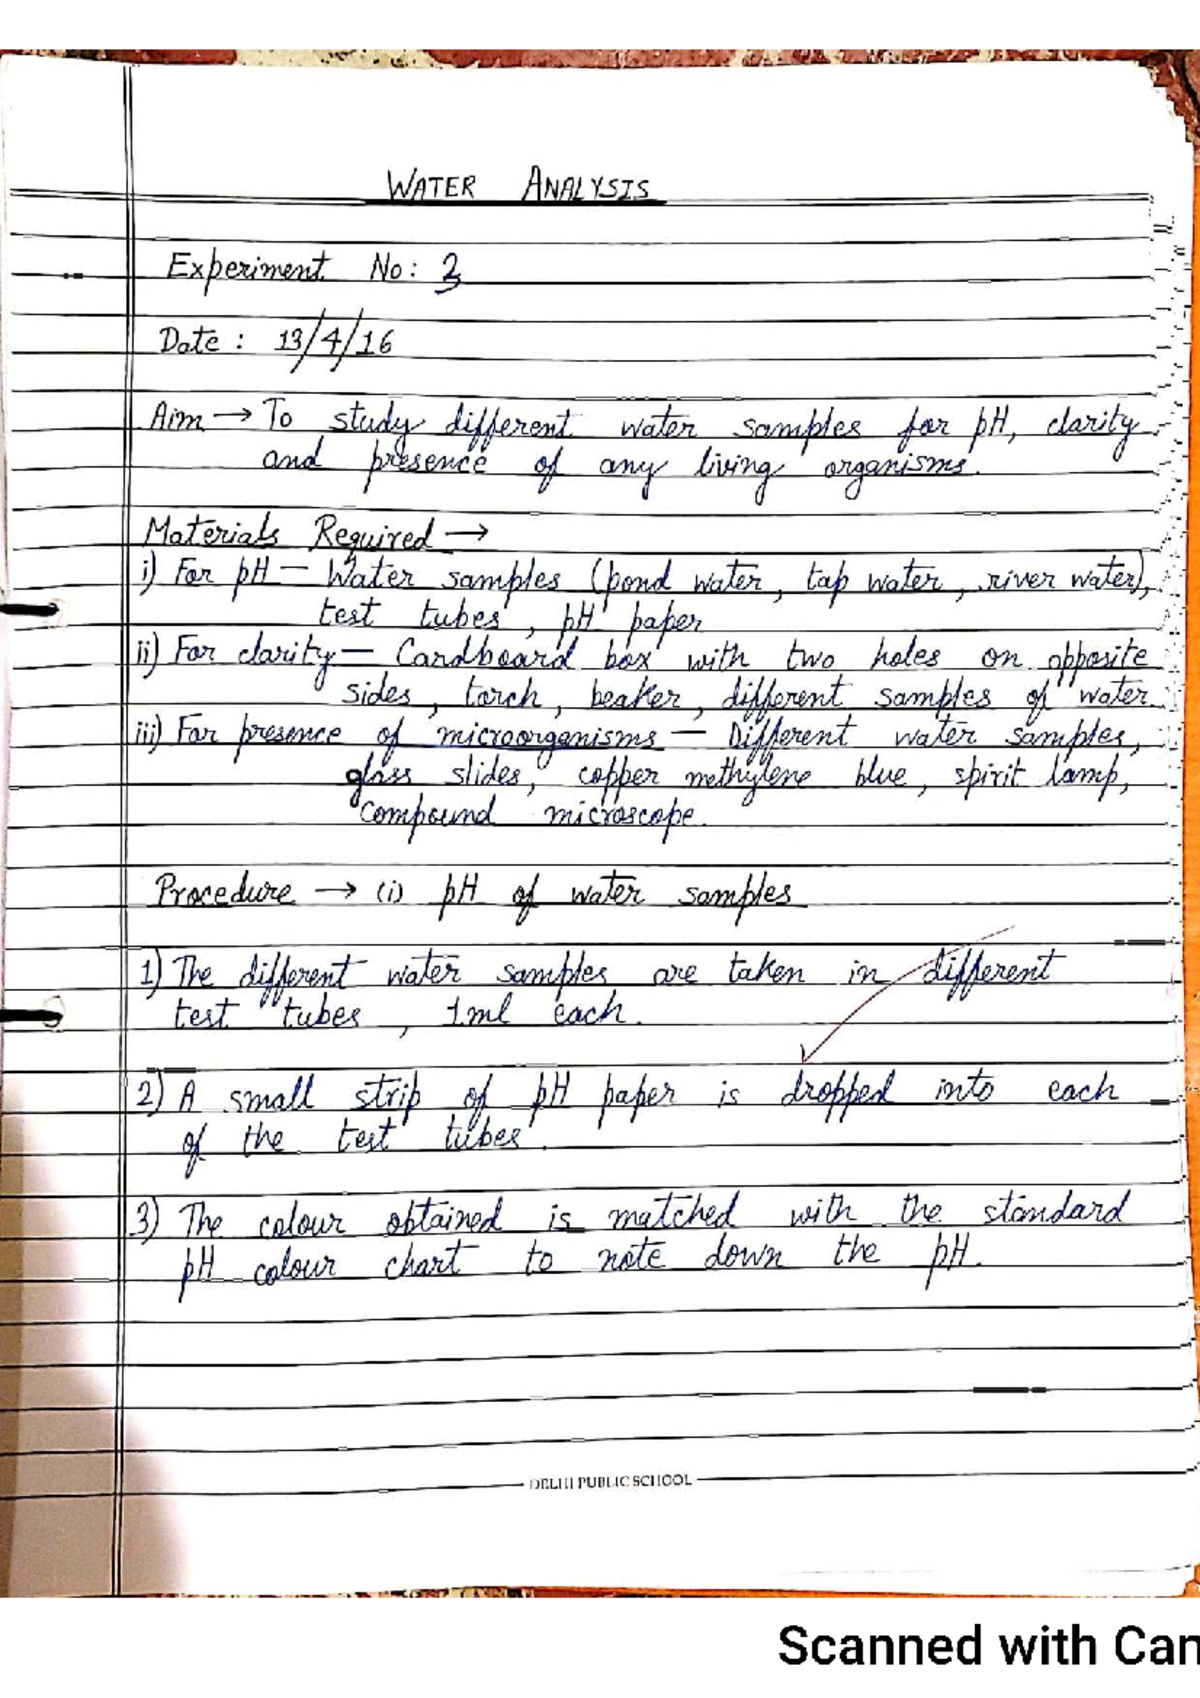 WATER ANALYSIS
Experiment No: 3
Date : 13/4/16
Aim → To study different water samples for pH, clarity
and presence of any living organisms.
Materials Required →
i) For pH — Water samples (pond water, tap water, river water),
test tubes, pH paper
ii) For clarity — Cardboard box with two holes on opposite
sides, torch, beaker, different samples of water
iii) For presence of microorganisms — Different water samples,
glass slides, copper methylene blue, spirit lamp,
compound microscope.
Procedure → (i) pH of water samples
1) The different water samples are taken in different
test tubes, 1ml each.
2) A small strip of pH paper is dropped into each
of the test tubes.
3) The colour obtained is matched with the standard
pH colour chart to note down the pH.
DELHI PUBLIC SCHOOL
Scanned with Cam